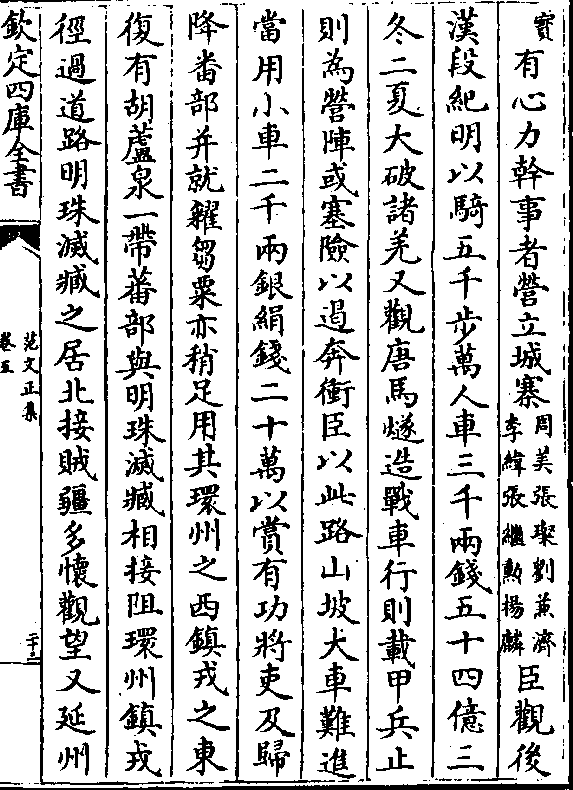 寶有心力幹事者營立城寨周美張璨劉兼濟李緯張繼勲楊麟臣觀後
漢段紀明以騎五千步萬人車三千兩錢五十四億三
冬二夏大破諸羌又觀唐馬燧造戰車行則載甲兵止
則為營陣或塞險以遏奔衝臣以此路山坡大車難進
當用小車二千兩銀絹錢二十萬以賞有功將吏及歸
降畨部并就糴芻粟亦稍足用其環州之西鎮戎之東
復有胡蘆泉一帶蕃部與明珠滅臧相接阻環州鎮戎
徑過道路明珠滅臧之居北接賊疆多懷觀望又延州
欽定四庫全書
范文正集
卷五
二十三